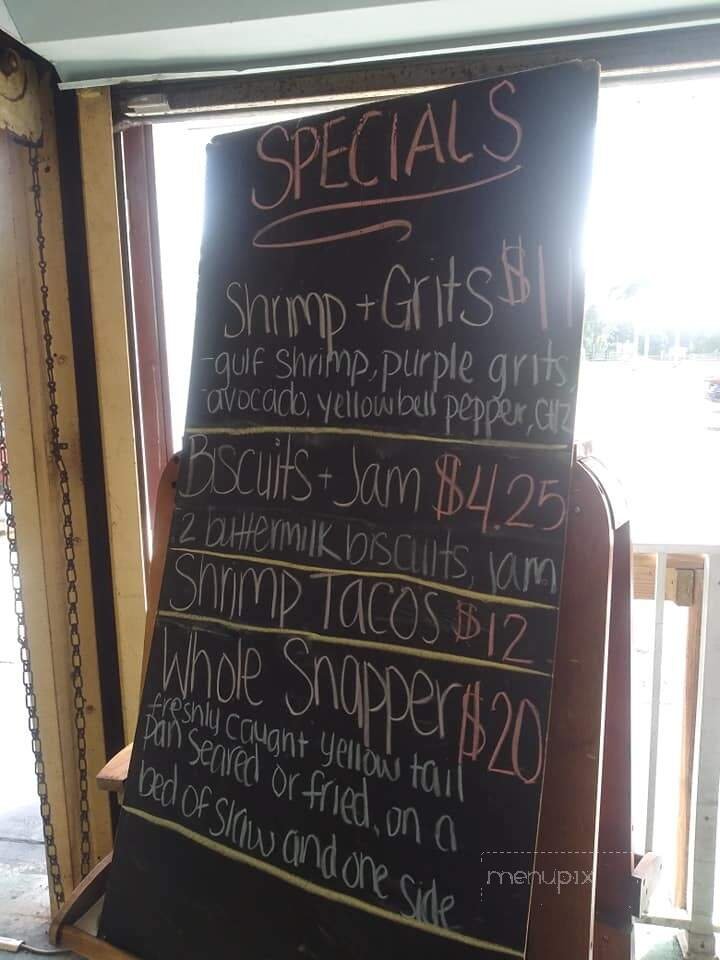 SPECIALS
Shrimp + Grits $11
-gulf shrimp, purple grits,
avocado, yellow bell pepper,
Biscuits + Jam $4.25
2 buttermilk biscuits, jam
Shrimp Tacos $12
Whole Snapper $20
freshly caught yellow tail
pan seared or fried, on a
bed of slaw and one side
menupix